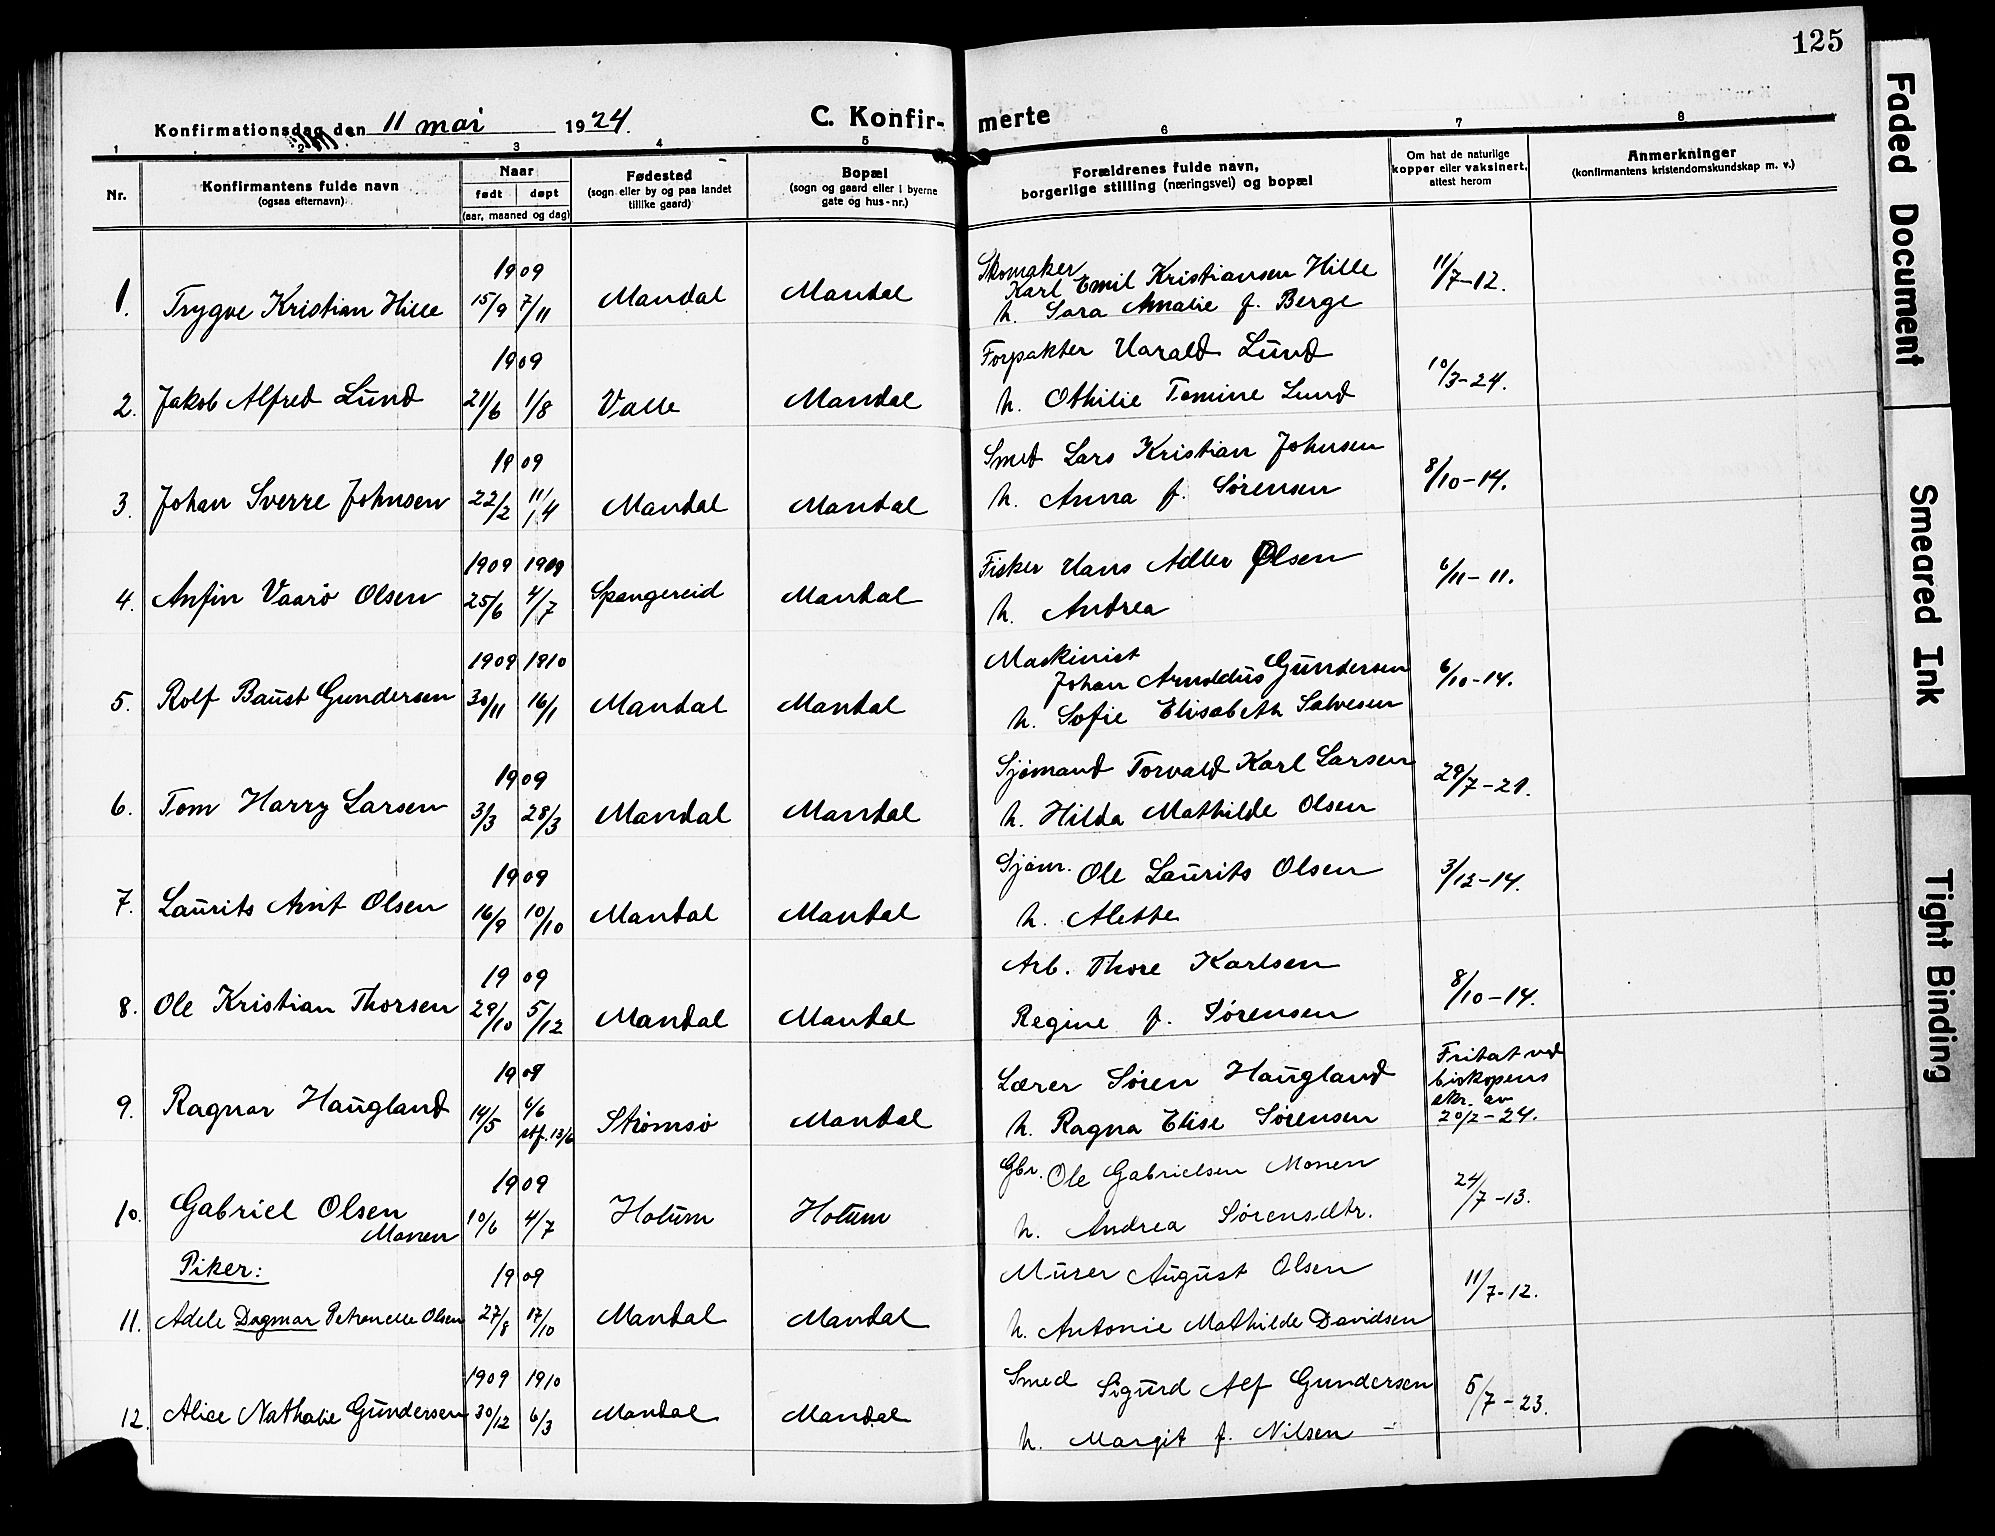 125
Konfirmationsdag den 11 mai 1924. C. Konfir- merte
1 2 3 4 5 6 7 8
Nr.
Konfirmantens fulde navn
(ogsaa efternavn)
Naar
født døpt
(aar, maaned og dag)
Fødested
(sogn eller by og paa landet
tillike gaard)
Bopæl
(sogn og gaard eller i byerne
gate og hus-nr.)
Forældrenes fulde navn,
borgerlige stilling (næringsvei) og bopæl
Om hat de naturlige
kopper eller vaksinert,
attest herom
Anmerkninger
(konfirmantens kristendomskundskap m. v.)
1909 Skomaker
Karl Emil Kristiansen Hille
1. Trygve Kristian Hille 15/9 7/11 Mandal Mandal h. Sara Amalie f. Berge 11/7-12.
1909 Forpakter Harald Lund
2. Jakob Alfred Lund 21/6 1/8 Valle Mandal h. Othilie Tomine Lund 10/3-24.
1909 Smed Lars Kristian Johnsen
3. Johan Sverre Johnsen 22/2 11/4 Mandal Mandal h. Anna f. Sørensen 8/10-14.
1909 1909 Fisker Hans Adler Olsen
4. Anfin Vaarø Olsen 25/6 4/7 Spangereid Mandal h. Andrea 6/11-11.
1909 1910 Maskinist
Johan Arnoldus Gundersen
5. Rolf Baust Gundersen 30/11 16/1 Mandal Mandal h. Sofie Elisabeth Salvesen 6/10-14.
1909 Sjømand Torvald Karl Larsen
6. Tom Harry Larsen 3/3 28/3 Mandal Mandal h. Hilda Mathilde Olsen 29/7-21.
1909 Sjøm. Ole Laurits Olsen
7. Laurits Arnt Olsen 16/9 10/10 Mandal Mandal h. Alette 3/12-14.
1909 Arb. Thore Karlsen
8. Ole Kristian Thorsen 29/10 5/12 Mandal Mandal Regine f. Sørensen 8/10-14.
1909 Lærer Søren Haugland
9. Ragnar Haugland 14/5 6/6 stf. 13/6 Strømsø Mandal h. Ragna Elise Sørensen
Fritat ved
biskopens
skr. av
20/2-24.
1909 Gbr. Ole Gabrielsen Monen
10. Gabriel Olsen Monen 10/6 4/7 Holum Holum h. Andrea Sørensdtr. 24/7-13.
Piker:
1909 Murer August Olsen
11. Adele Dagmar Petronelle Olsen 27/8 17/10 Mandal Mandal h. Antonie Mathilde Davidsen 11/7-12.
1909 1910 Smed Sigurd Alf Gundersen
12. Alice Nathalie Gundersen 30/12 6/3 Mandal Mandal h. Margit f. Nilsen 5/7-23.
Faded Document
Smeared Ink
Tight Binding